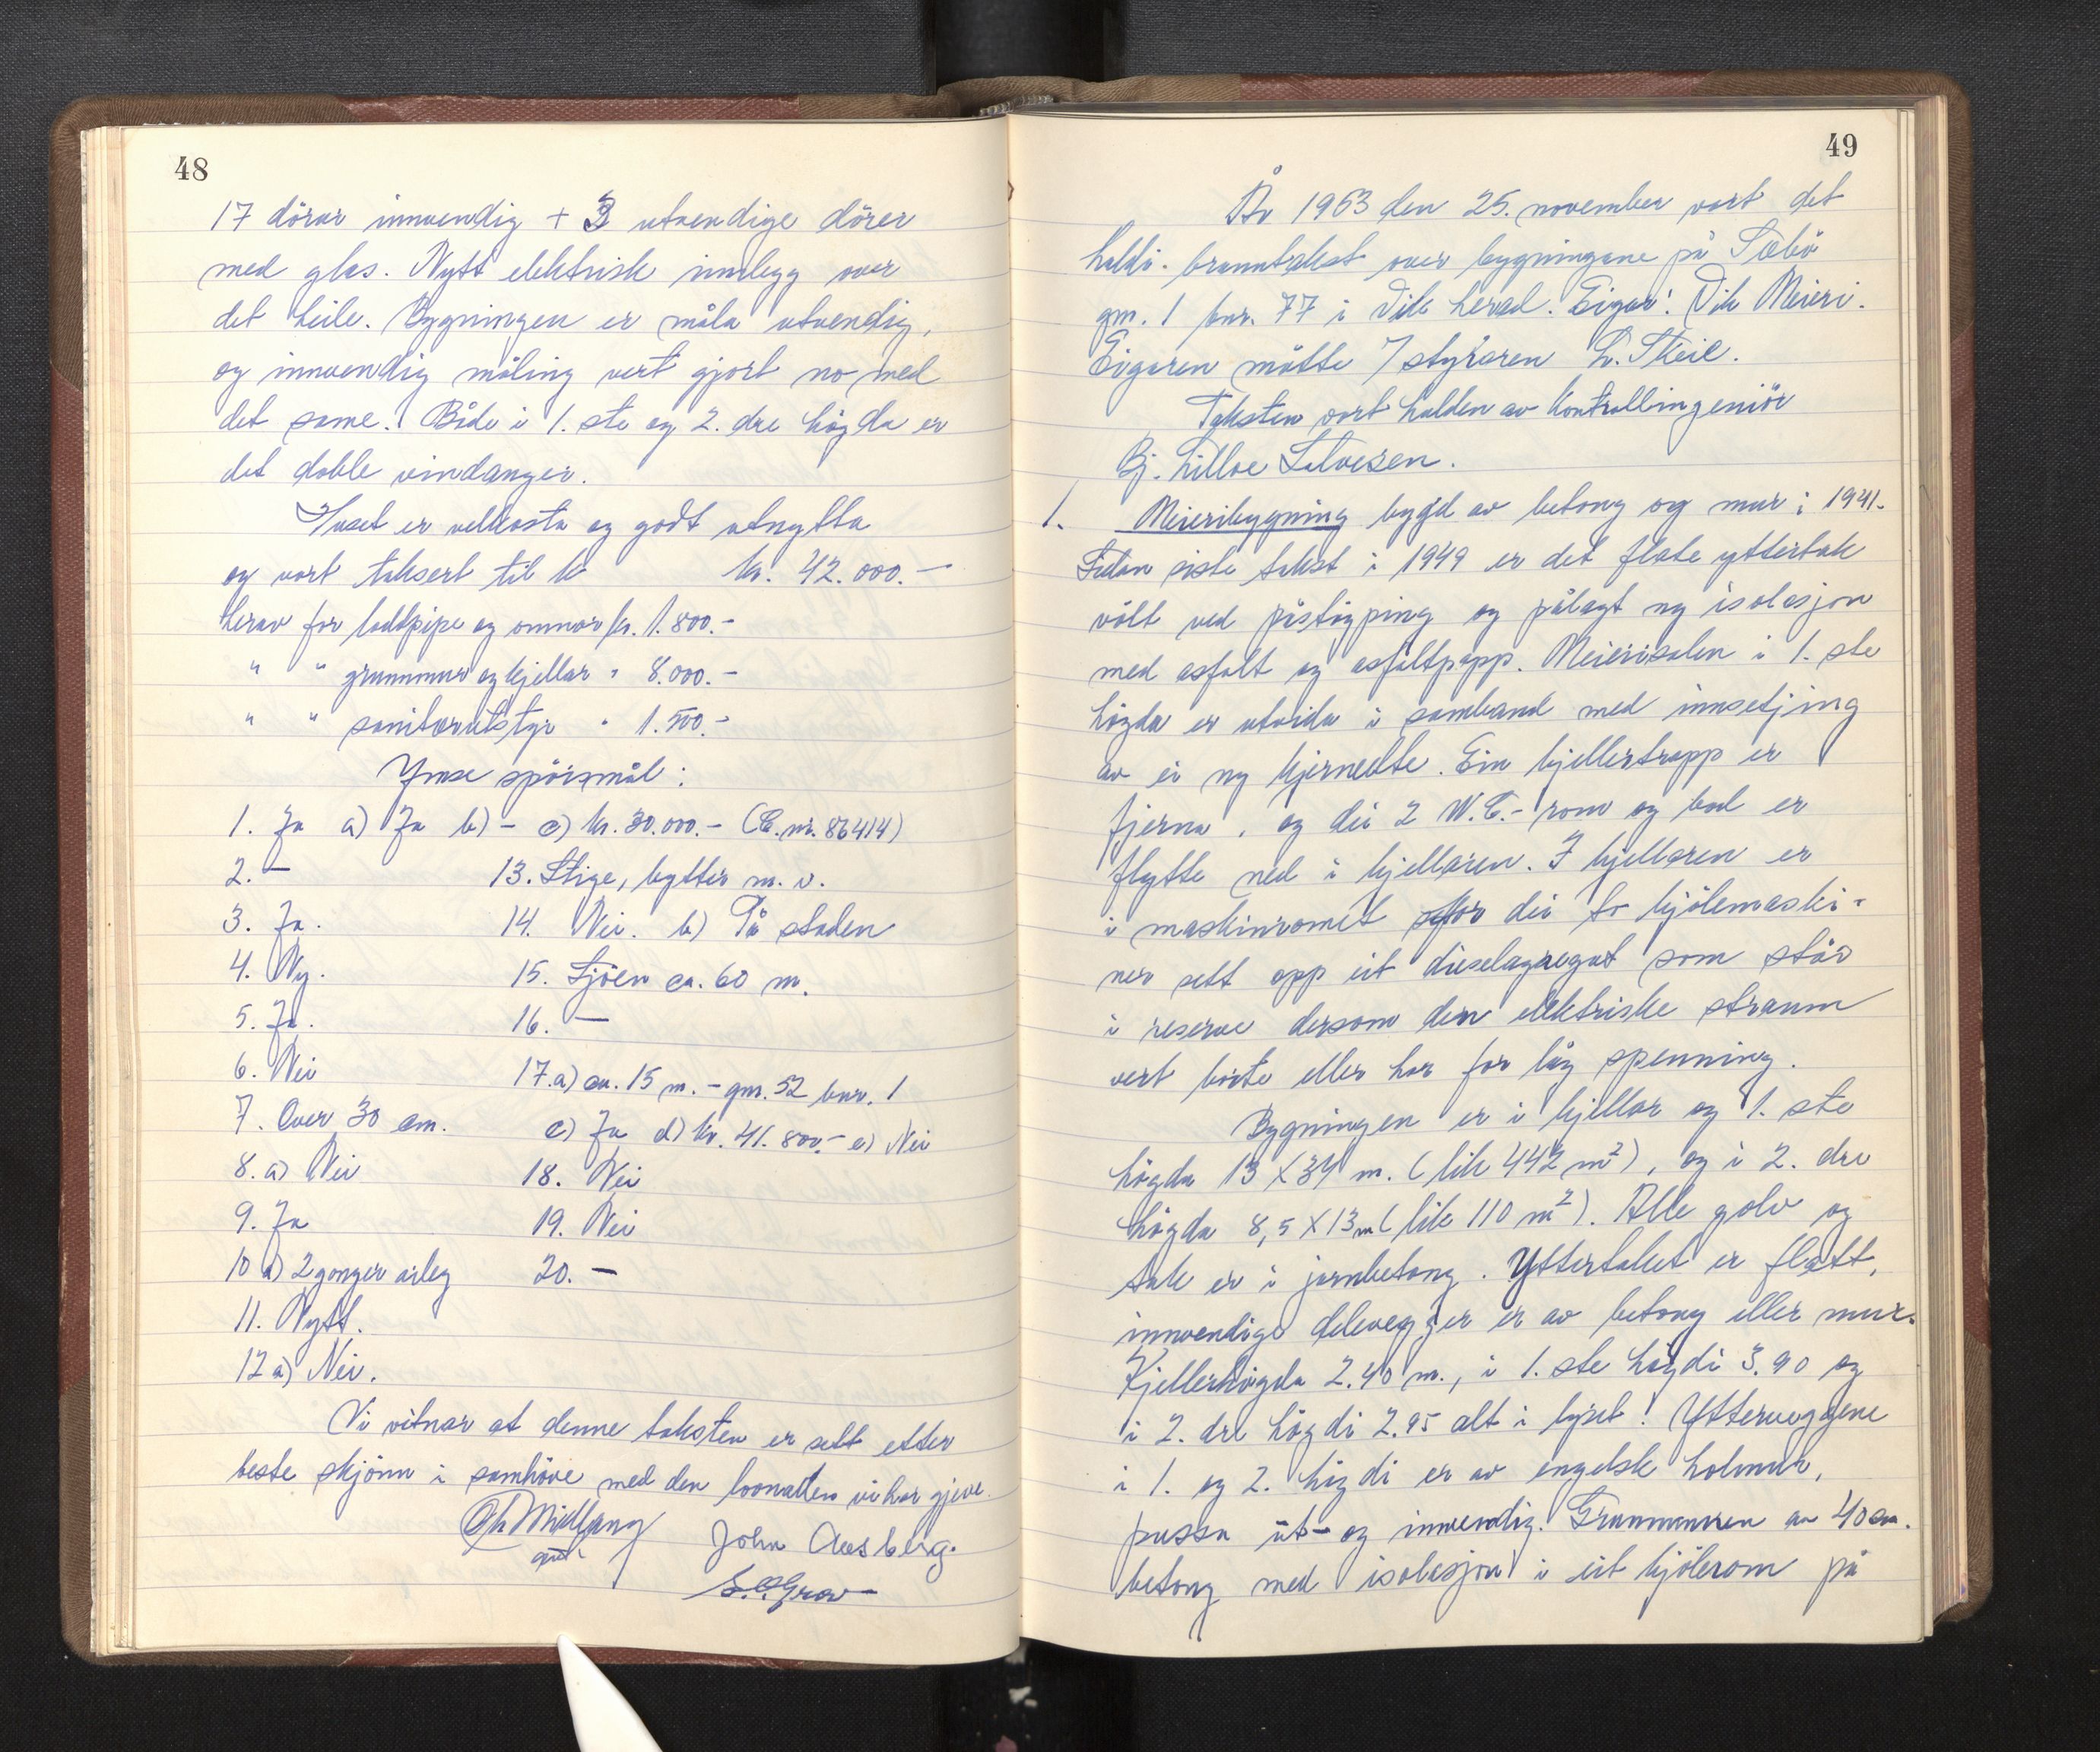 48
17 dörar innvendig + 3 utvendige dörer
med glas. Nytt elektrisk innlegg over
det heile. Bygningen er måla utvendig,
og innvendig måling vert gjort no med
det same. Både i 1. ste og 2. dre högda er
det doble vindauger.
Huset er velkosta og godt utnytta
og vart taksert til k kr. 42.000.-
herav for loddpipe og omnar kr. 1.800.-
" " grunnmur og kjellar " 8.000.-
" " sanitærutstyr " 1.500.-
Ymse spörsmål:
1. Ja a) Ja b) - c) kr. 30.000.- (C.nr. 86414)
2. - 13. Stige, bytter m. v.
3. Ja. 14. Nei. b) På staden
4. Ny. 15. Sjöen ca. 60 m.
5. Ja. 16. -
6. Nei 17.a) ca. 15 m. - gnr. 52 bnr. 1
7. Over 30 cm. c) Ja d) kr. 41.800.- e) Nei
8. a) Nei 18. Nei
9. Ja 19. Nei
10 a) 2 gonger årleg 20. -
11. Nytt.
12 a) Nei.
Vi vitnar at denne taksten er sett etter
beste skjönn i samhöve med den lovnaden vi har gjeve.
John Aasberg.
Grov
49
År 1963 den 25. november vart det
haldi branntakst over bygningane på Sæbö
gnr. 1 bnr. 77 i Vik herad. Eigar: Vik Meieri.
Eigaren mötte v/styraren L. Skeie.
Taksten vart halden av kontrollingeniör
Bj. Lilloe Salvesen.
1. Meieribygning bygd av betong og mur i 1941.
Sidan siste takst i 1949 er det flate yttertak
völt ved påstöyping og pålagt ny isolasjon
med asfalt og asfaltpapp. Meierisalen i 1. ste
högda er utvida i samband med innsetjing
av ei ny kjernebtte. Ein kjellertrapp er
fjerna, og dei 2 W.C.-rom og bad er
flytte ned i kjellaren. I kjellaren er
i maskinromet for dei to kjölemaski-
ner sett opp eit dieselagregat som står
i reserve dersom den elektriske straum
vert borte eller har for låg spenning.
Bygningen er i kjellar og 1. ste
högda 13 X 34 m. (lik 442 m²), og i 2. dre
högda 8,5 X 13 m (lik 110 m²). Alle golv og
tak er i jarnbetong. Yttertaket er flatt,
innvendige delevegger er av betong eller mur.
Kjellerhögda 2.40 m., i 1. ste högdi 3.90 og
i 2. dre högdi 2.95 alt i lyset. Ytterveggene
i 1. og 2. högdi er av engelsk holmur,
pussa ut- og innvendig. Grunnmuren av 40 cm.
betong med isolasjon i eit kjölerom på